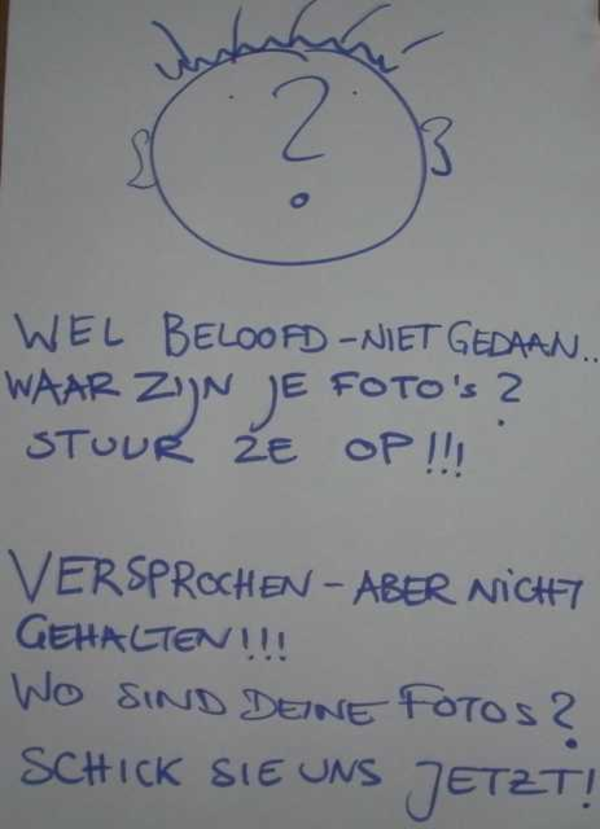 ?
WEL BELOOFD - NIET GEDAAN..
WAAR ZIJN JE FOTO'S?
STUUR ZE OP!!!
VERSPROCHEN - ABER NICHT
GEHALTEN!!!
WO SIND DEINE FOTOS?
SCHICK SIE UNS JETZT!